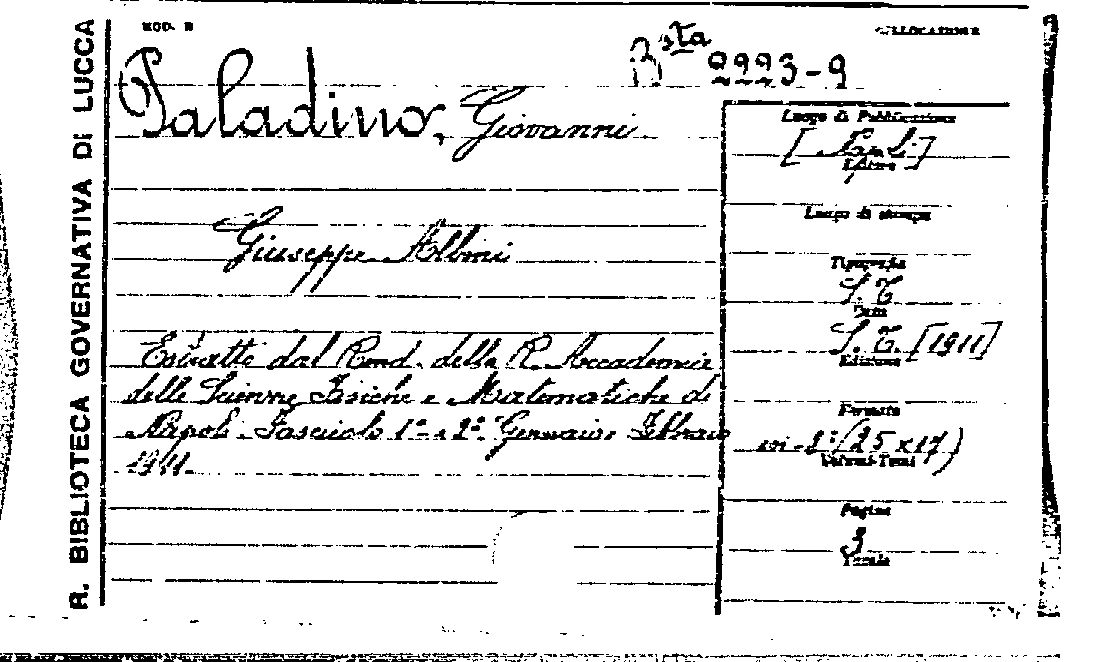 R. BIBLIOTECA GOVERNATIVA DI LUCCA
MOD. B
COLLOCAZIONE
Bsta 2223-9
Paladino, Giovanni
Giuseppe Albini
Estratto dal Rend. della R. Accademia
delle Scienze Fisiche e Matematiche di
Napoli. Fascicolo 1° e 2° Gennaio e Febbraio
1911.
Luogo di Pubblicazione
[Napoli]
Editore
Luogo di stampa
Tipografia
S. T.
Data
S. T. [1911]
Edizione
Formato
in-8° (25 x 17)
Volumi-Tomi
Pagine
3
Tavole